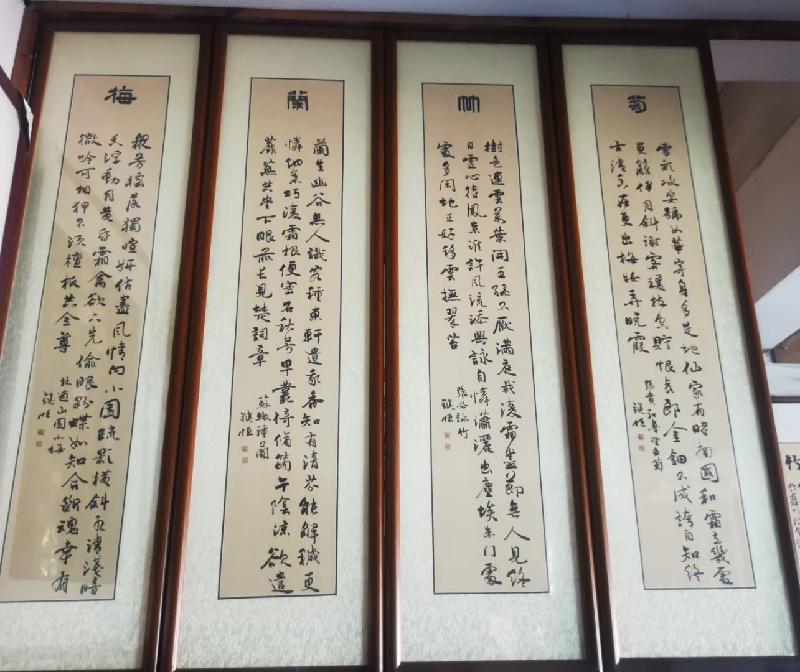 梅
眾芳搖落獨暄妍佔盡風情向小園疏影橫斜水清淺暗
香浮動月黃昏霜禽欲下先偷眼粉蝶如知合斷魂幸有
微吟可相狎不須檀板共金尊
林逋山園小梅
蘭
蘭生幽谷無人識客種東軒遺我香知有清芬能解穢更
憐細葉巧凌霜根便密石秋芳早叢倚脩筠午陰涼欲遣
蘼蕪共堂下眼前長見楚詞章
蘇轍種蘭
竹
樹色連雲萬葉開王孫不厭滿庭栽凌霜盡節無人見終
日虛心待鳳來誰許風流添興詠自憐瀟灑出塵埃朱門處
處多閒地正好移陰撫翠苔
張必詠竹
菊
雪彩冰姿號女華寄身多是地仙家有時南國和霜立幾處
東籬伴月斜謝客瓊枝空貯恨袁郎金鈿不成誇自知終
古清香在更出梅妝弄晚霞
張賁和魯望白菊